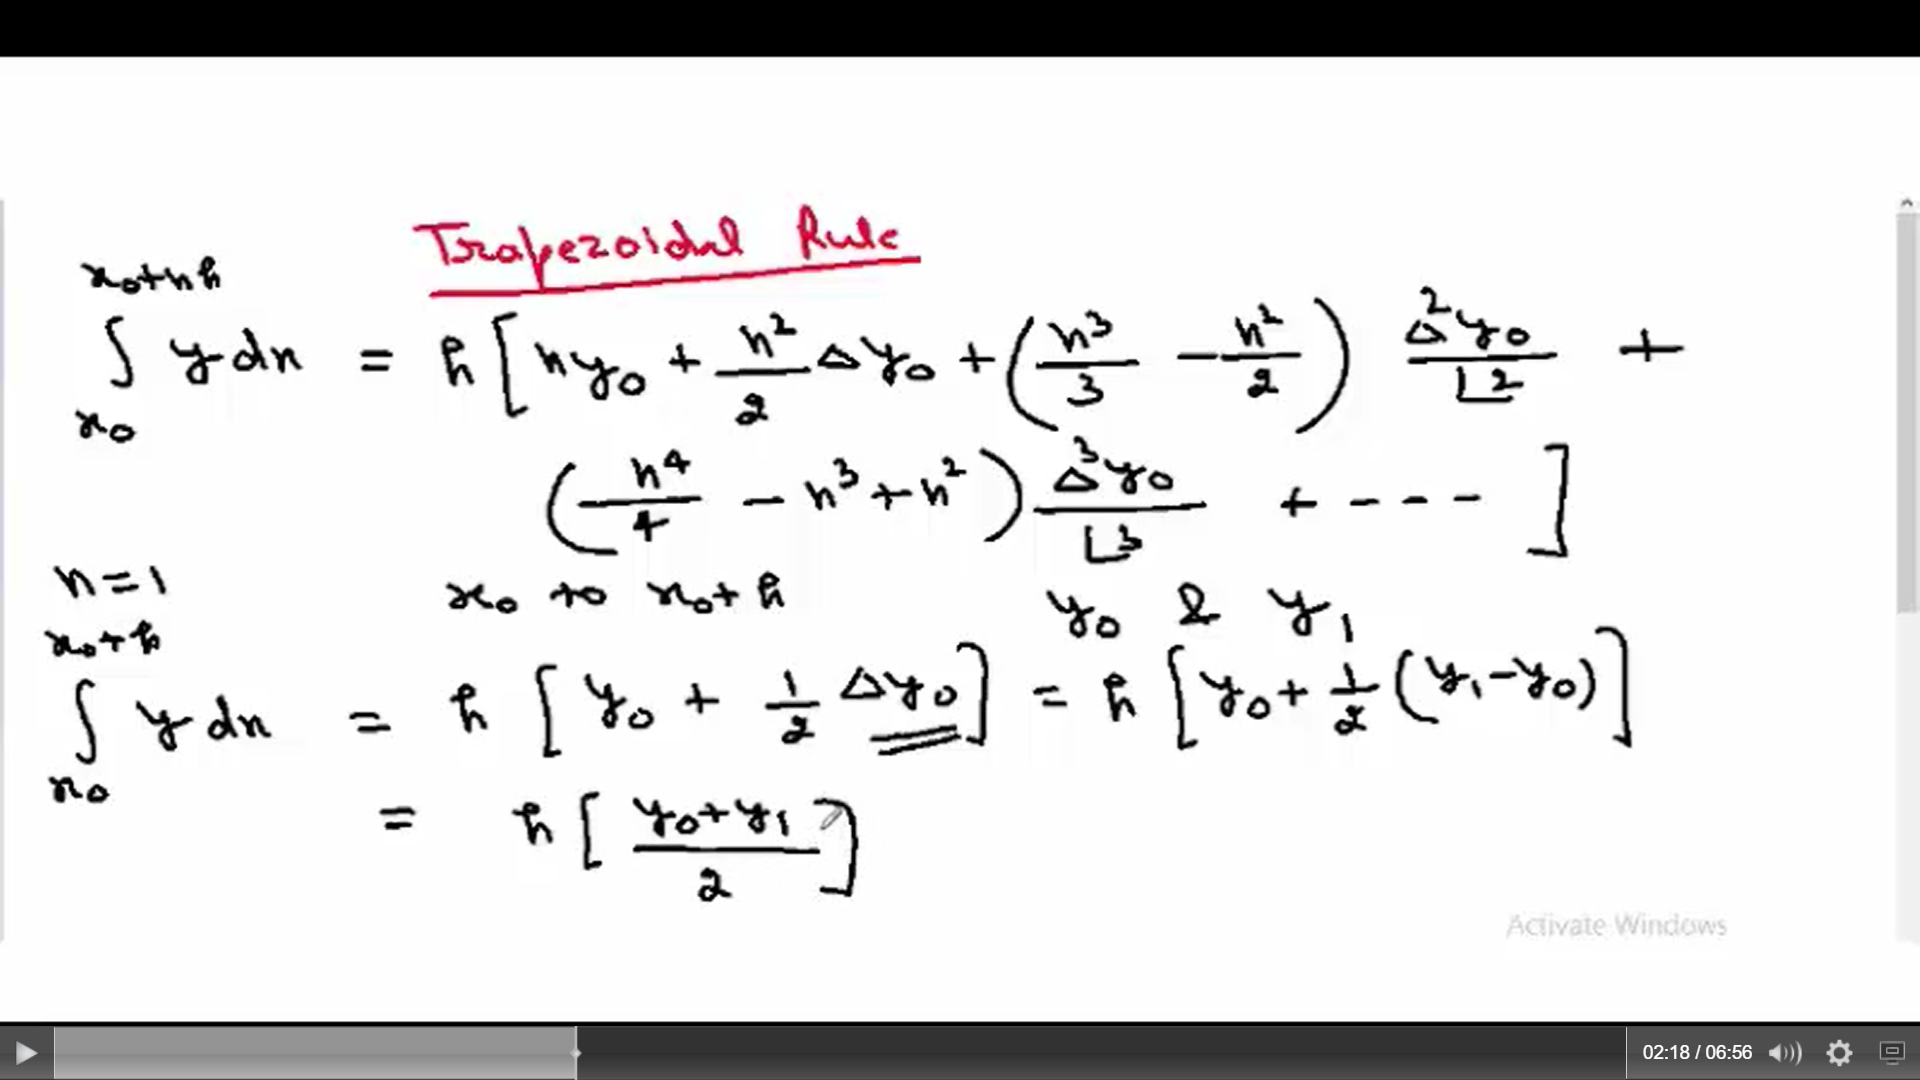 Trapezoidal Rule
x₀+nh
∫ y dx = h [ n y₀ + n²/2 Δy₀ + ( n³/3 − n²/2 ) Δ²y₀/⌊2 +
x₀
( n⁴/4 − n³ + n² ) Δ³y₀/⌊3 + - - - - ]
n = 1 x₀ to x₀+h y₀ & y₁
x₀+h
∫ y dx = h [ y₀ + 1/2 Δy₀ ] = h [ y₀ + 1/2 (y₁ − y₀) ]
x₀
= h [ (y₀ + y₁)/2 ]
Activate Windows
02:18 / 06:56